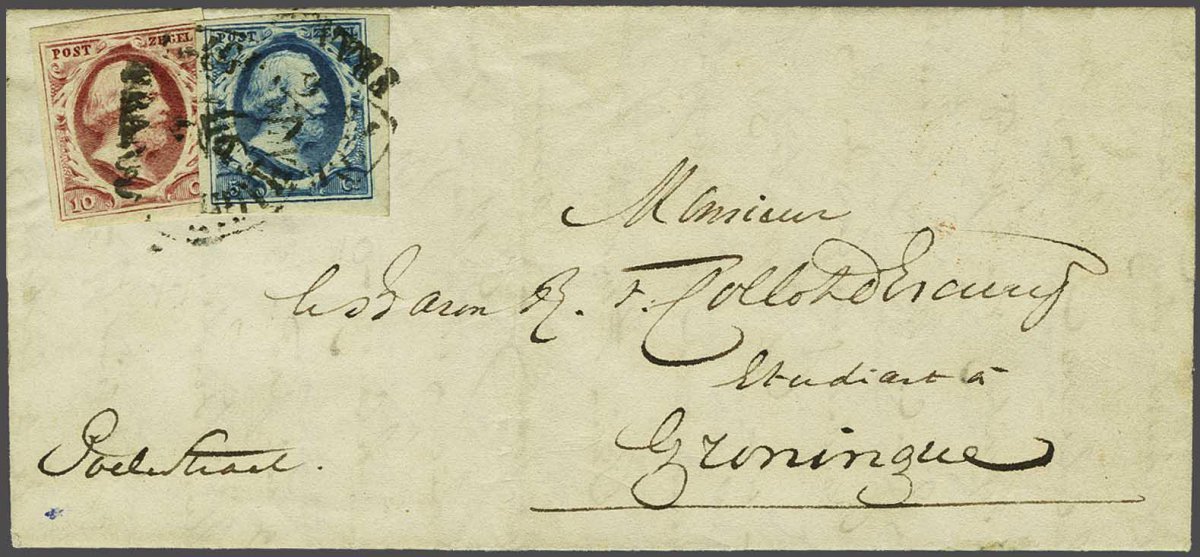 POST ZEGEL
10 C
POST ZEGEL
5 C
Monsieur
le Baron R. F. Collot d'Escury
Etudiant à
Groningue
Poelestraat.